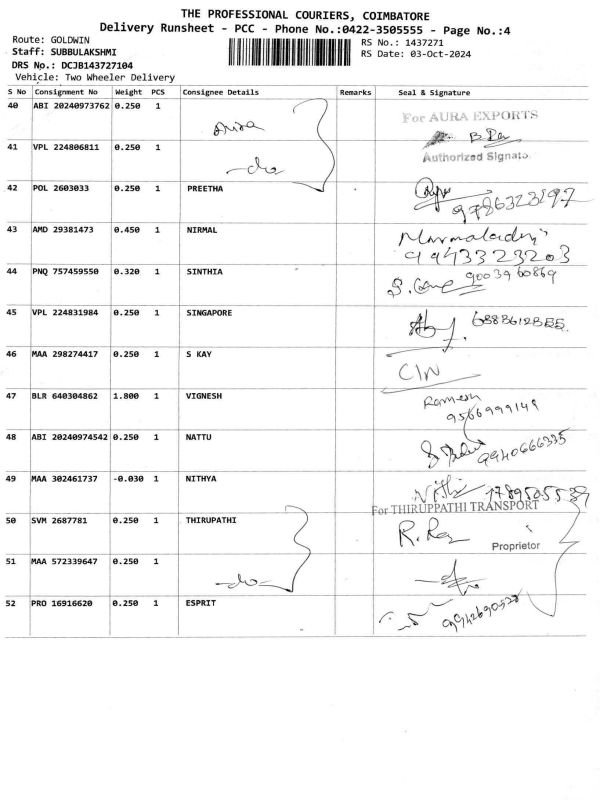 THE PROFESSIONAL COURIERS, COIMBATORE
Delivery Runsheet - PCC - Phone No.:0422-3505555 - Page No.:4
Route: GOLDWIN
Staff: SUBBULAKSHMI
DRS No.: DCJB143727104
Vehicle: Two Wheeler Delivery
RS No.: 1437271
RS Date: 03-Oct-2024
S No Consignment No Weight PCS Consignee Details Remarks Seal & Signature
40 ABI 20240973762 0.250 1 For AURA EXPORTS
Authorized Signato
41 VPL 224806811 0.250 1 -do-
42 POL 2603033 0.250 1 PREETHA
43 AMD 29381473 0.450 1 NIRMAL
9943323203
44 PNQ 757459550 0.320 1 SINTHIA 9003960869
45 VPL 224831984 0.250 1 SINGAPORE
46 MAA 298274417 0.250 1 S KAY
47 BLR 640304862 1.800 1 VIGNESH Ramesh
9566999149
48 ABI 20240974542 0.250 1 NATTU 9940666335
49 MAA 302461737 -0.030 1 NITHYA
For THIRUPPATHI TRANSPORT
50 SVM 2687781 0.250 1 THIRUPATHI
Proprietor
51 MAA 572339647 0.250 1 -do-
52 PRO 16916620 0.250 1 ESPRIT